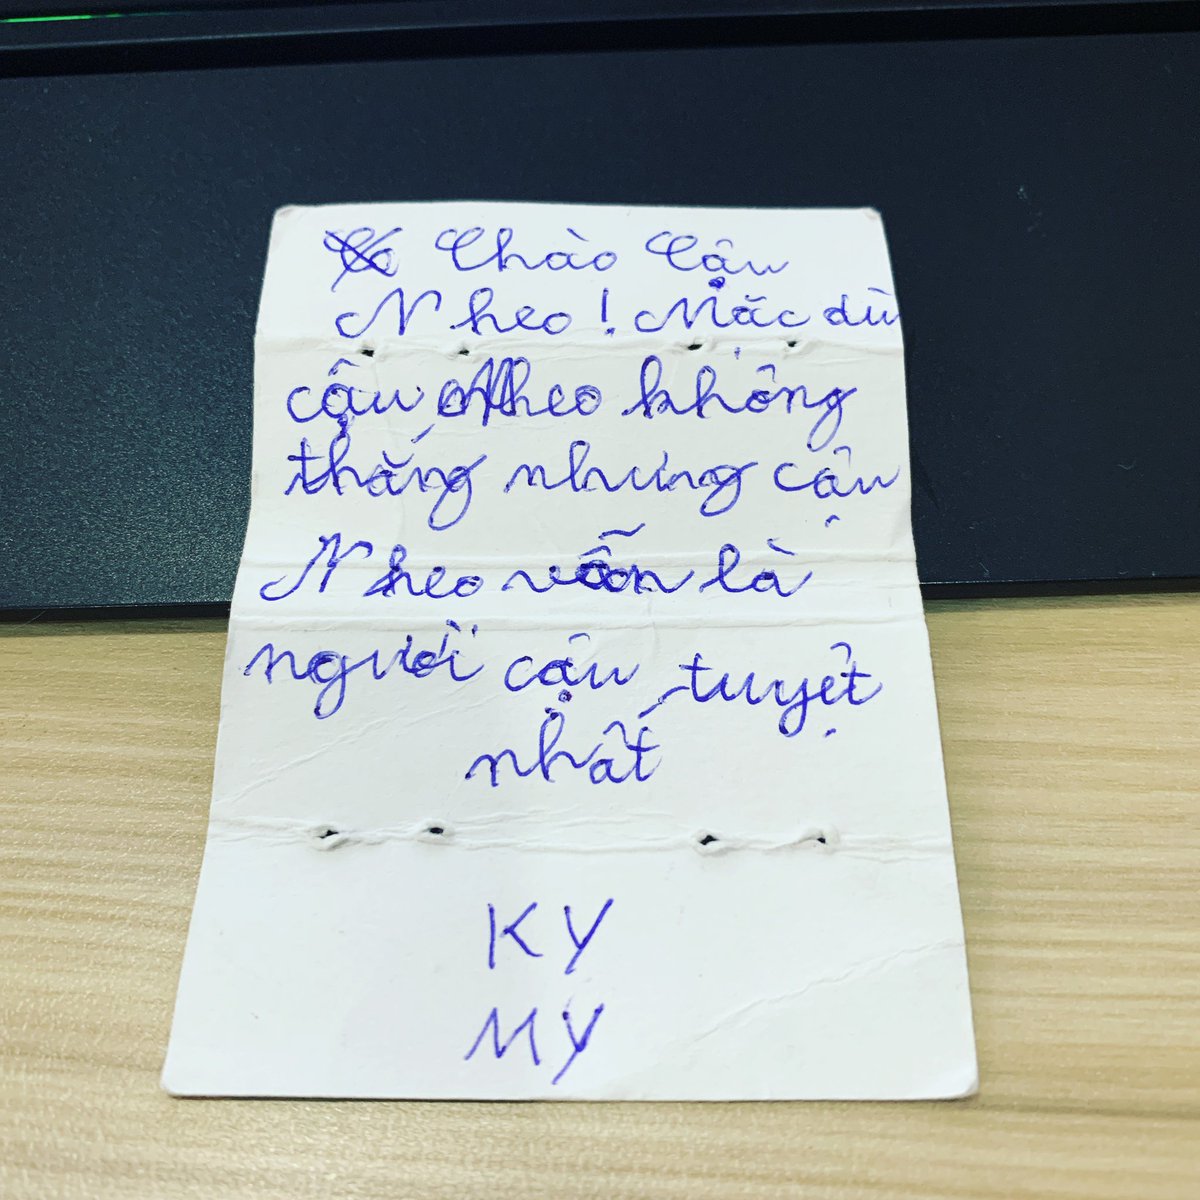 Chào Cậu
Nheo! Mặc dù
cậu Nheo không
thắng nhưng cậu
Nheo vỗn là
người cậu tuyệt
nhất
KY
MY